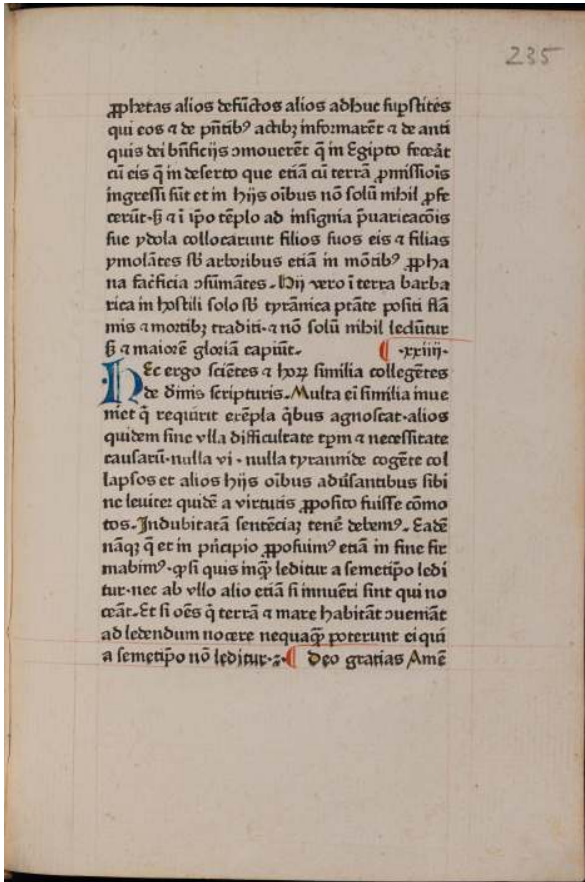 235
ꝓphetas alios defūctos alios adhuc suꝑstites
qui eos ⁊ de pn̄tibꝰ actibꝫ informarēt ⁊ de anti
quis dei bn̄ficijs ↄmouerēt q̄ in Egipto feceāt
cū eis q̄ in deserto que etiā cū terrā ꝓmissiōis
ingressi sūt et in hijs oībus nō solū nihil ꝓfe
cerūt· ⁊ ī ip̄o tēplo ad insignia p̄uaricacōis
sue ydola collocarunt filios suos eis ⁊ filias
ymolātes sb̄ arboribus etiā in mōtibꝰ ꝓpha
na sac̄ficia ↄsūmātes. Hij vero ī terra barba
rica in hostili solo sb̄ tyrānica ptāte positi flā
mis ⁊ mortibꝫ traditi·⁊ nō solū nihil ledūtur
⁊ maiorē gloriā capiūt. ·xxiiij·
HEc ergo sciētes ⁊ hoꝝ similia collegētes
de diuīs scripturis. Multa eī similia inue
niet q̄ requirit exēpla q̄bus agnoscat·alios
quidem sine vlla difficultate tꝑm ⁊ necessitate
causarū·nulla vi·nulla tyrannide cogēte col
lapsos et alios hijs oībus adūsantibus sibi
ne leuiter quidē a virtutis ꝓposito fuisse cōmo
tos. Indubitatā sentēciaꝫ tenē debemꝰ. Eadē
nāqꝫ q̄ et in pͥncipio ꝓposuimꝰ etiā in fine fir
mabimꝰ·ꝙ si quis inqꝫ leditur a semetip̄o ledi
tur·nec ab vllo alio etiā si innuēri sint qui no
ceāt. Et si oēs q̄ terrā ⁊ mare habitāt ↄueniāt
ad ledendum nocere nequaqꝫ poterunt ei qui
a semetip̄o nō leditur·⁊· Deo gratias Amē